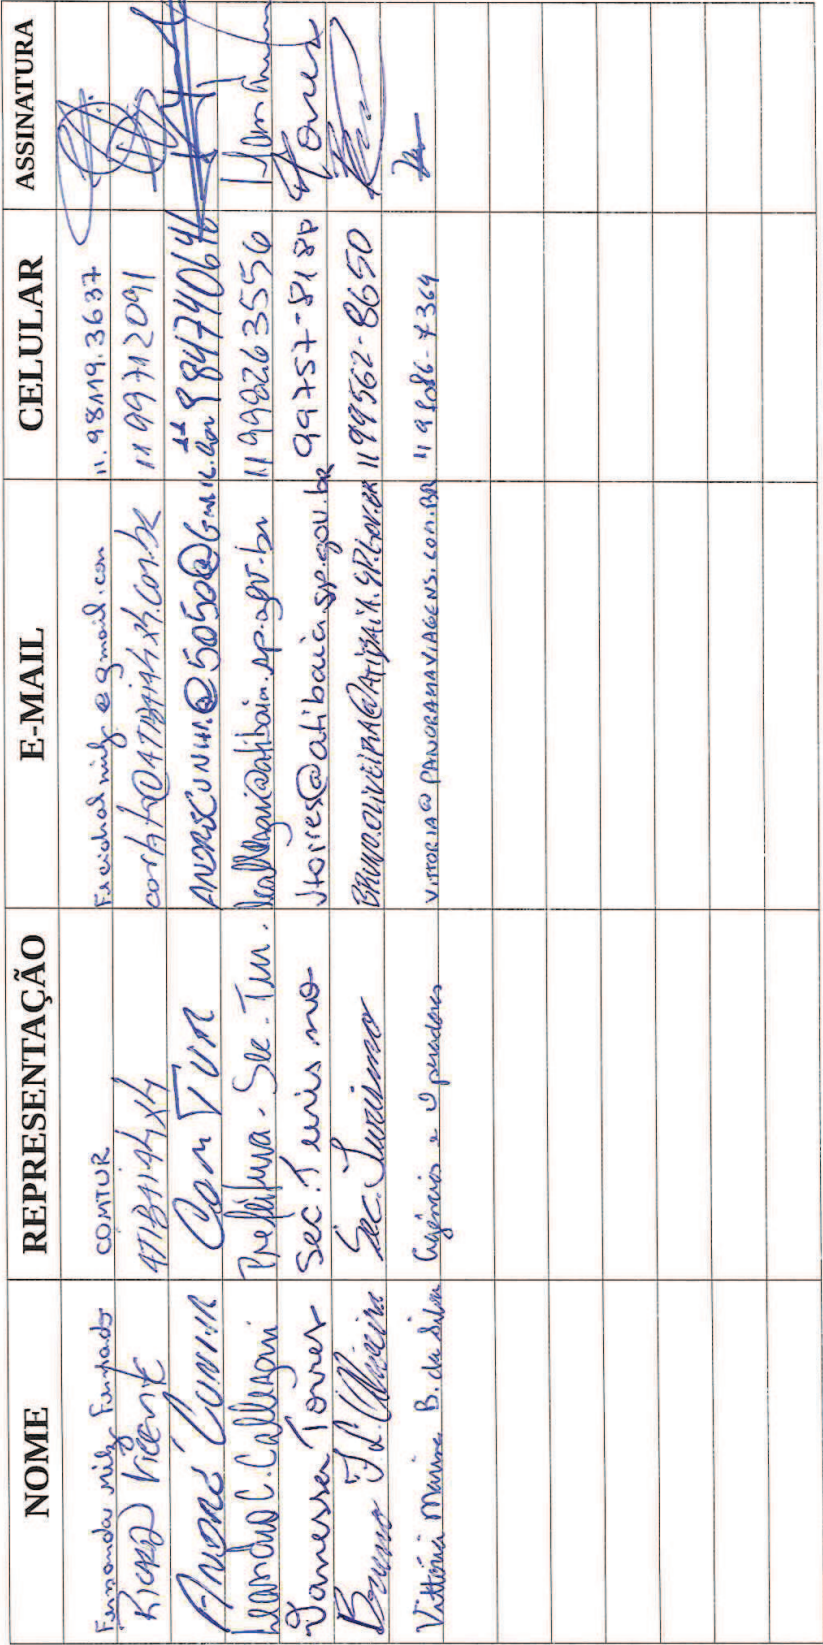 NOME REPRESENTAÇÃO E-MAIL CELULAR ASSINATURA
Fernanda Furtado COMTUR @gmail.com 11.98119.3637
Vicente ATIBAIA4X4 contato@ATIBAIA4X4.com.br 11 99712091
André Cunha ComTUR ANDRECUNHA@5050@Gmail.com 11 984740646
Leandro C. Callegari Prefeitura - Sec. Tur. lcallegari@atibaia.sp.gov.br 11 999263556
Vanessa Torres Sec. Turismo vtorres@atibaia.sp.gov.br 99757-8180 Torres
Bruno J. L. Oliveira Sec. Turismo BRUNO.OLIVEIRA@ATIBAIA.SP.GOV.BR 11 99562-8650
Vittória Marina B. da Silva Agências e Operadores VITTORIA@PANORAMAVIAGENS.COM.BR